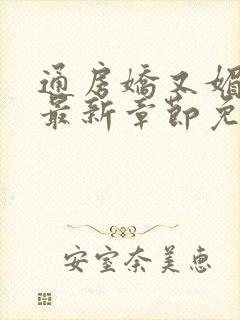 通房嬌又媚
最新章節免
安室奈美惠